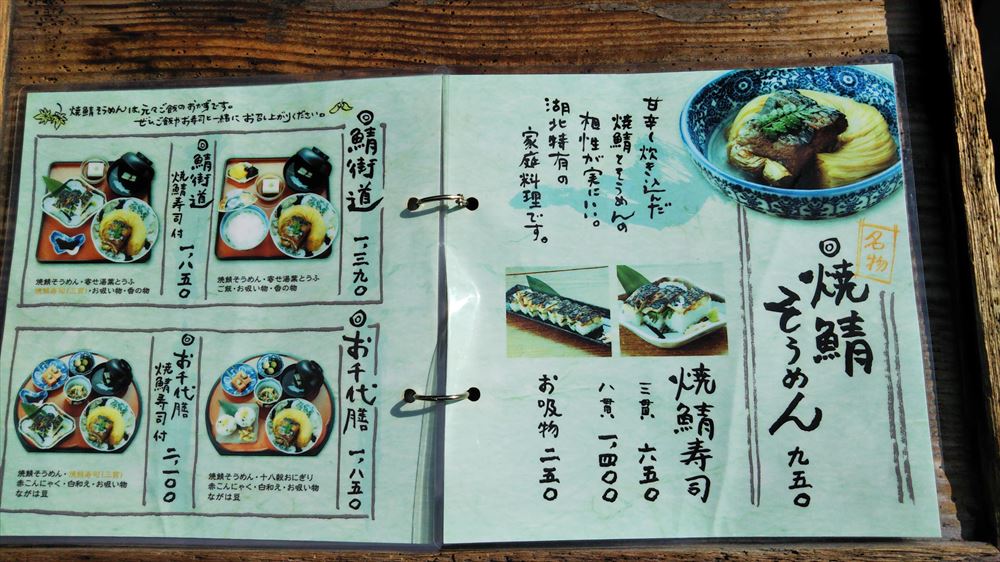 名物
焼鯖
そうめん 九五〇
甘辛く炊き込んだ
焼鯖とそうめんの
相性が実にいい。
湖北特有の
家庭料理です。
焼鯖寿司
三貫 六五〇
八貫 一、四〇〇
お吸物 二五〇
焼鯖そうめんは、元々ご飯のおかずです。
ぜひご飯やお寿司と一緒にお召し上がりください。
鯖街道
一、三九〇
焼鯖そうめん・寄せ湯葉とうふ
ご飯・お吸い物・香の物
鯖街道
焼鯖寿司付 一、八五〇
焼鯖そうめん・寄せ湯葉とうふ
焼鯖寿司(三貫)・お吸い物・香の物
お千代膳
一、八五〇
焼鯖そうめん・十八穀おにぎり
赤こんにゃく・白和え・お吸い物
ながは豆
お千代膳
焼鯖寿司付 二、一〇〇
焼鯖そうめん・焼鯖寿司(三貫)
赤こんにゃく・白和え・お吸い物
ながは豆